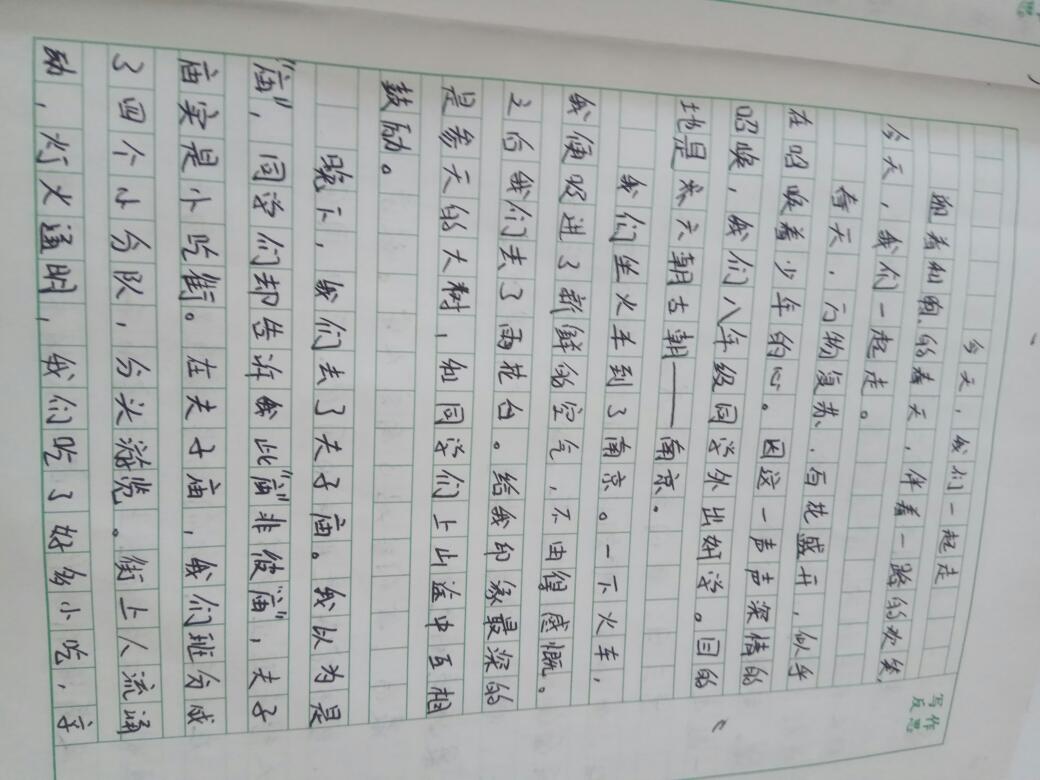 今天,我们一起走
迎着和煦的春天,伴着一路的欢笑,
今天,我们一起走。
春天,万物复苏,百花盛开,似乎
在召唤着少年的心。因这一声声深情的
召唤,我们八年级同学外出研学。目的
地是六朝古朝——南京。
我们坐火车到了南京。一下火车,
我便吸进了新鲜的空气,不由得感慨。
之后我们去了雨花台。给我印象最深的
是参天的大树,和同学们上山途中互相
鼓励。
晚上,我们去了夫子庙。我以为是
“庙”,同学们却告诉我此“庙”非彼“庙”,夫子
庙实是小吃街。在夫子庙,我们班分成
了四个小分队,分头游览。街上人流涌
动,灯火通明,我们吃了好多小吃,字
写作
反思